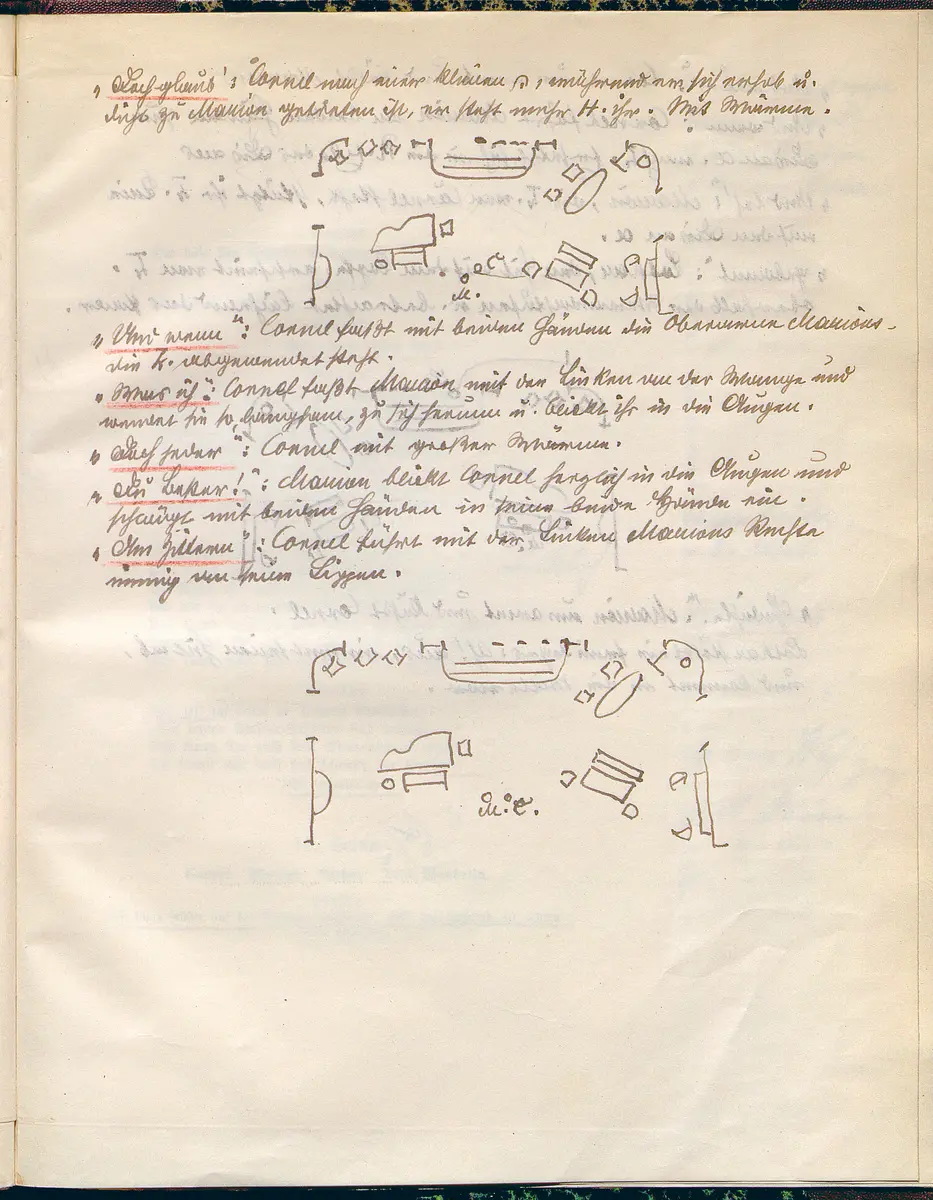 „Doch glaub": Cornel nach einer kleinen ⌒, während er sich erhob u.
dicht zu Marion getreten ist, er steht mehr H. ihr. Mit Wärme.
M. C.
„Und wenn": Cornel faßt mit beiden Händen die Oberarme Marions
die k. abgewendet steht.
„Was ich": Cornel faßt Marion mit der Linken an der Wange und
wendet sie so, langsam, zu sich herum u. blickt ihr in die Augen.
„Doch jeder": Cornel mit großer Wärme.
„Du Bester!": Marion blickt Cornel herzlich in die Augen und
schlägt mit beiden Händen in seine beide Hände ein.
„Am Zittern": Cornel führt mit der Linken Marions Rechte
innig an seine Lippen.
M. C.